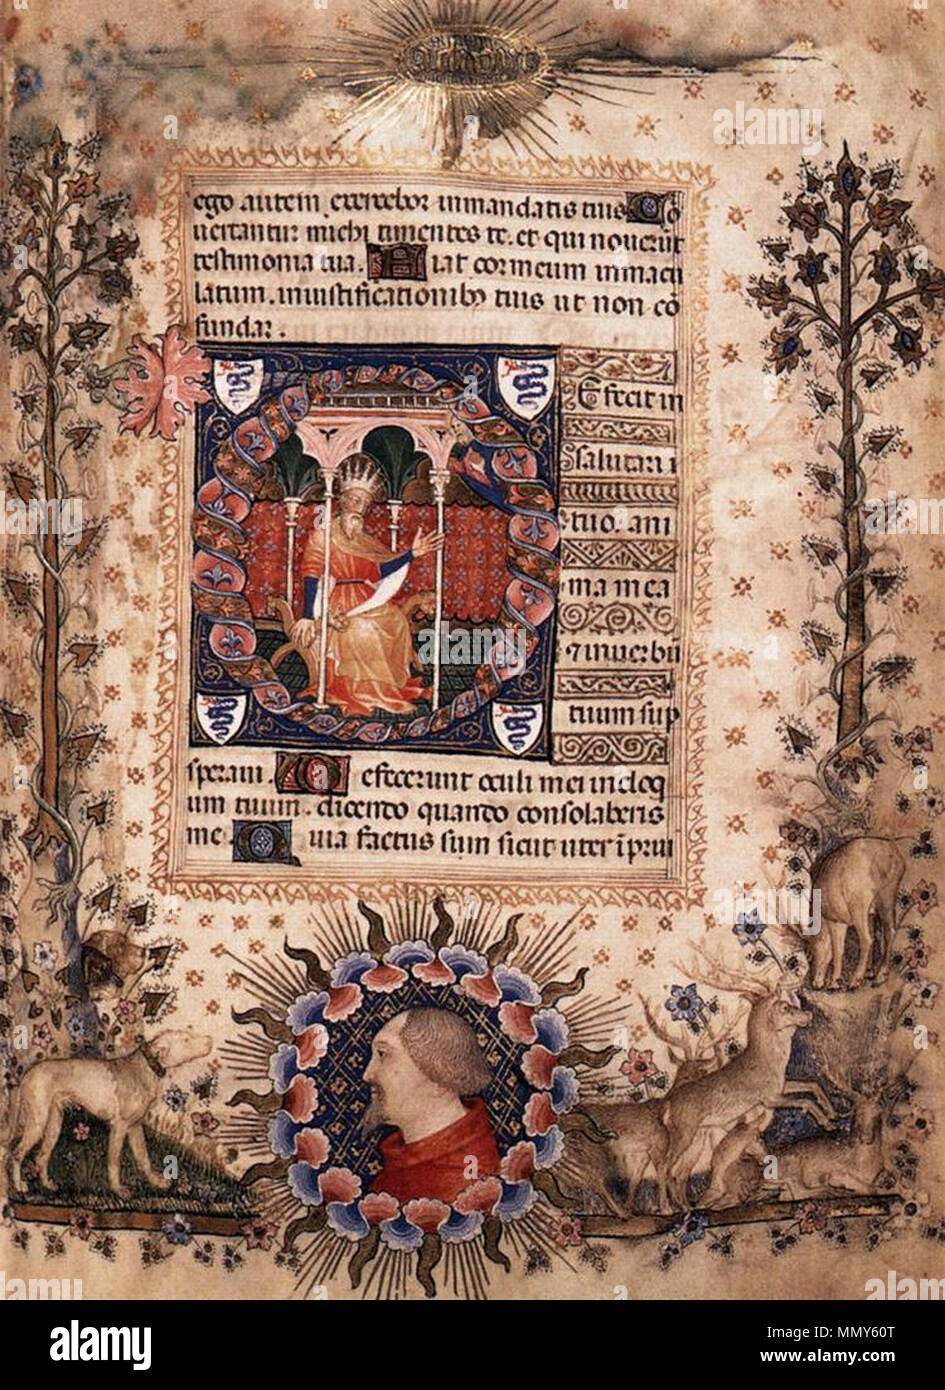 ego autem exercebor in mandatis tuis Cō
vertantur michi timentes te. et qui noverūt
testimonia tua. Fiat cor meum inmacu
latum. in iustificationibꝫ tuis ut non cō
fundar.
Efecit in
salutari
tuo. ani
ma mea
et in verbū
tuum sup
speravi. Defecerunt oculi mei in eloq
um tuum. dicendo quando consolaberis
me. Quia factus sum sicut uter ī prui
alamy
Image ID: MMY60T
www.alamy.com